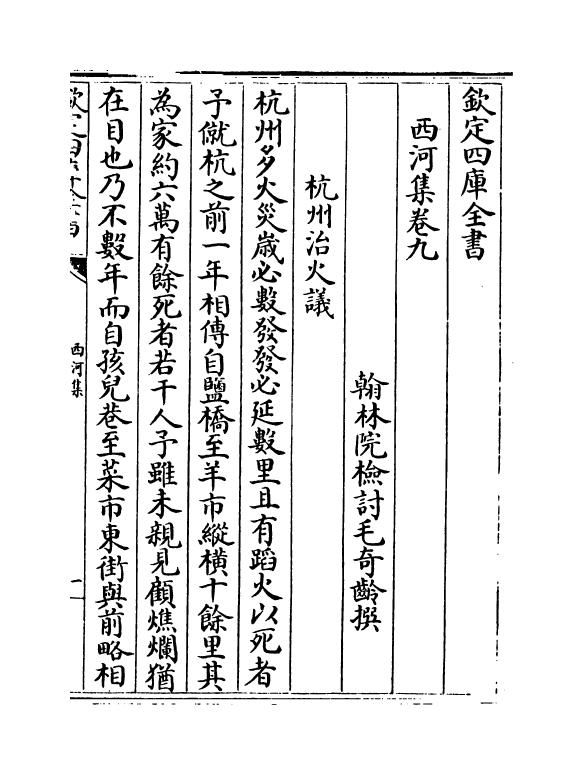 欽定四庫全書
西河集卷九
翰林院檢討毛奇齡撰
杭州治火議
杭州多火災歲必數發發必延數里且有蹈火以死者
予僦杭之前一年相傳自鹽橋至羊市縱橫十餘里其
為家約六萬有餘死者若干人予雖未親見顧燋爛猶
在目也乃不數年而自孩兒巷至菜市東街與前略相
欽定四庫全書
西河集
一